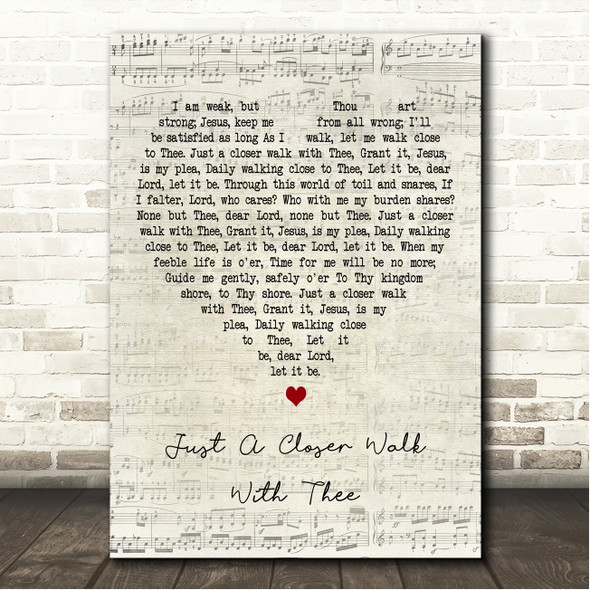 I am weak, but Thou art
strong; Jesus, keep me from all wrong; I'll
be satisfied as long As I walk, let me walk close
to Thee. Just a closer walk with Thee, Grant it, Jesus,
is my plea, Daily walking close to Thee, Let it be, dear
Lord, let it be. Through this world of toil and snares, If
I falter, Lord, who cares? Who with me my burden shares?
None but Thee, dear Lord, none but Thee. Just a closer
walk with Thee, Grant it, Jesus, is my plea, Daily walking
close to Thee, Let it be, dear Lord, let it be. When my
feeble life is o'er, Time for me will be no more;
Guide me gently, safely o'er To Thy kingdom
shore, to Thy shore. Just a closer walk
with Thee, Grant it, Jesus, is my
plea, Daily walking close
to Thee, Let it
be, dear Lord,
let it be.
Just A Closer Walk
With Thee